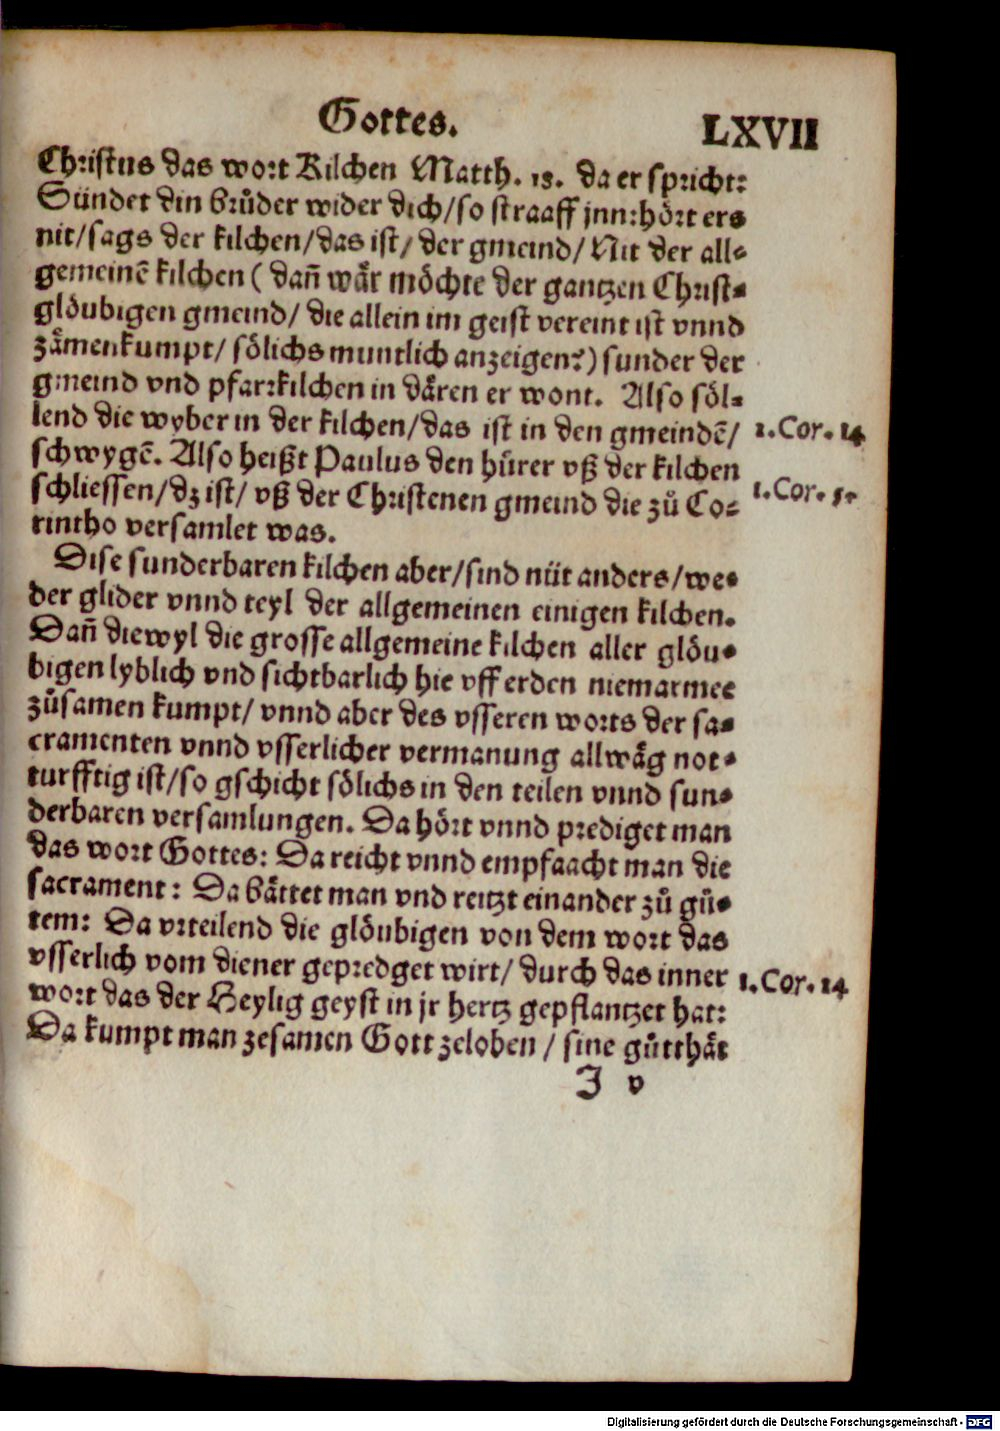 Gottes. LXVII
Christus das wort Kilchen Matth. 18. da er spricht:
Sündet din brůder wider dich/so straaff jnn:hört ers
nit/sags der kilchen/das ist/ der gmeind/ Nit der all⸗
gemeinē kilchen ( dañ wår möchte der gantzen Christ⸗
glöubigen gmeind/ die allein im geist vereint ist vnnd
zåmenkumpt/ sölichs muntlich anzeigen?) sunder der
gmeind vnd pfarrkilchen in dåren er wont. Also söl⸗
lend die wyber in der kilchen/das ist in den gmeindē/
1. Cor. 14
schwygē. Also heißt Paulus den hürer vß der kilchen
schliessen/dz ist/ vß der Christenen gmeind die zů Co⸗
1. Cor. 5.
rintho versamlet was.
Dise sunderbaren kilchen aber/sind nüt anders/we⸗
der glider vnnd teyl der allgemeinen einigen kilchen.
Dañ diewyl die grosse allgemeine kilchen aller glöu⸗
bigen lyblich vnd sichtbarlich hie vff erden niemarmee
zůsamen kumpt/ vnnd aber des vsseren worts der sa⸗
cramenten vnnd vsserlicher vermanung allwåg not⸗
turfftig ist/so gschicht sölichs in den teilen vnnd sun⸗
derbaren versamlungen. Da hört vnnd prediget man
das wort Gottes: Da reicht vnnd empfaacht man die
sacrament: Da båttet man vnd reitzt einander zů gů⸗
tem: Da vrteilend die glöubigen von dem wort das
vsserlich vom diener gepredget wirt/ durch das inner
1. Cor. 14
wort das der Heylig geyst in jr hertz gepflantzet hat:
Da kumpt man zesamen Gott zeloben / sine gůtthåt
J v
Digitalisierung gefördert durch die Deutsche Forschungsgemeinschaft - DFG